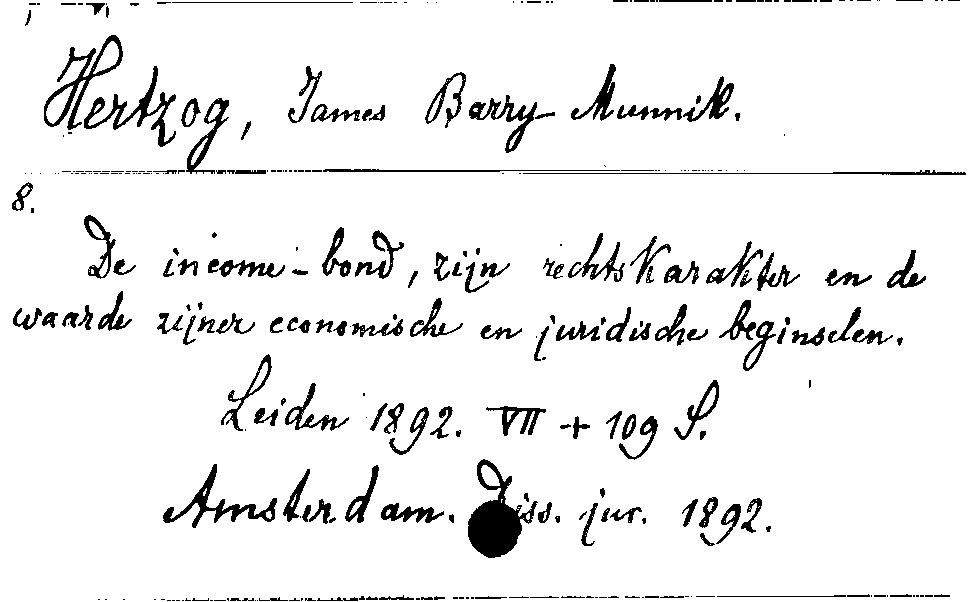 Hertzog, James Barry Munnik.
8.
De income-bond, zijn rechtskarakter en de
waarde zijner economische en juridische beginselen.
Leiden 1892. VII + 109 S.
Amsterdam. Diss. jur. 1892.